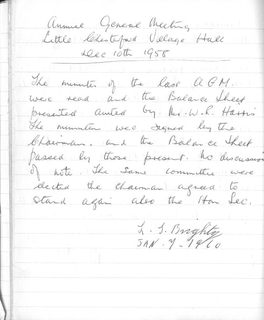 Annual General Meeting
Little Chesterford Village Hall
Dec 10th 1958
The minutes of the last A.G.M.
were read and the Balance Sheet
presented audited by Mr. W. P. Harris
The minutes was signed by the
Chairman. and the Balance Sheet
passed by those present. No discussion
of note. The same committee were
elected the chairman agreed to
stand again also the Hon Sec.
L. J. Brighty
JAN. 7. 1960